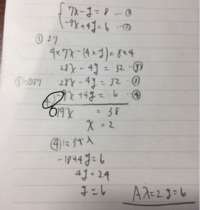 7x - y = 8 … ①
-9x + 4y = 6 … ②
①
4 × 7x - (4 × y) = 8 × 4
28x - 4y = 32 …
28x - 4y = 32
9x + 4y = 6
19x = 38
x = 2
-18 + 4y = 6
4y = 24
y = 6
A x = 2 y = 6